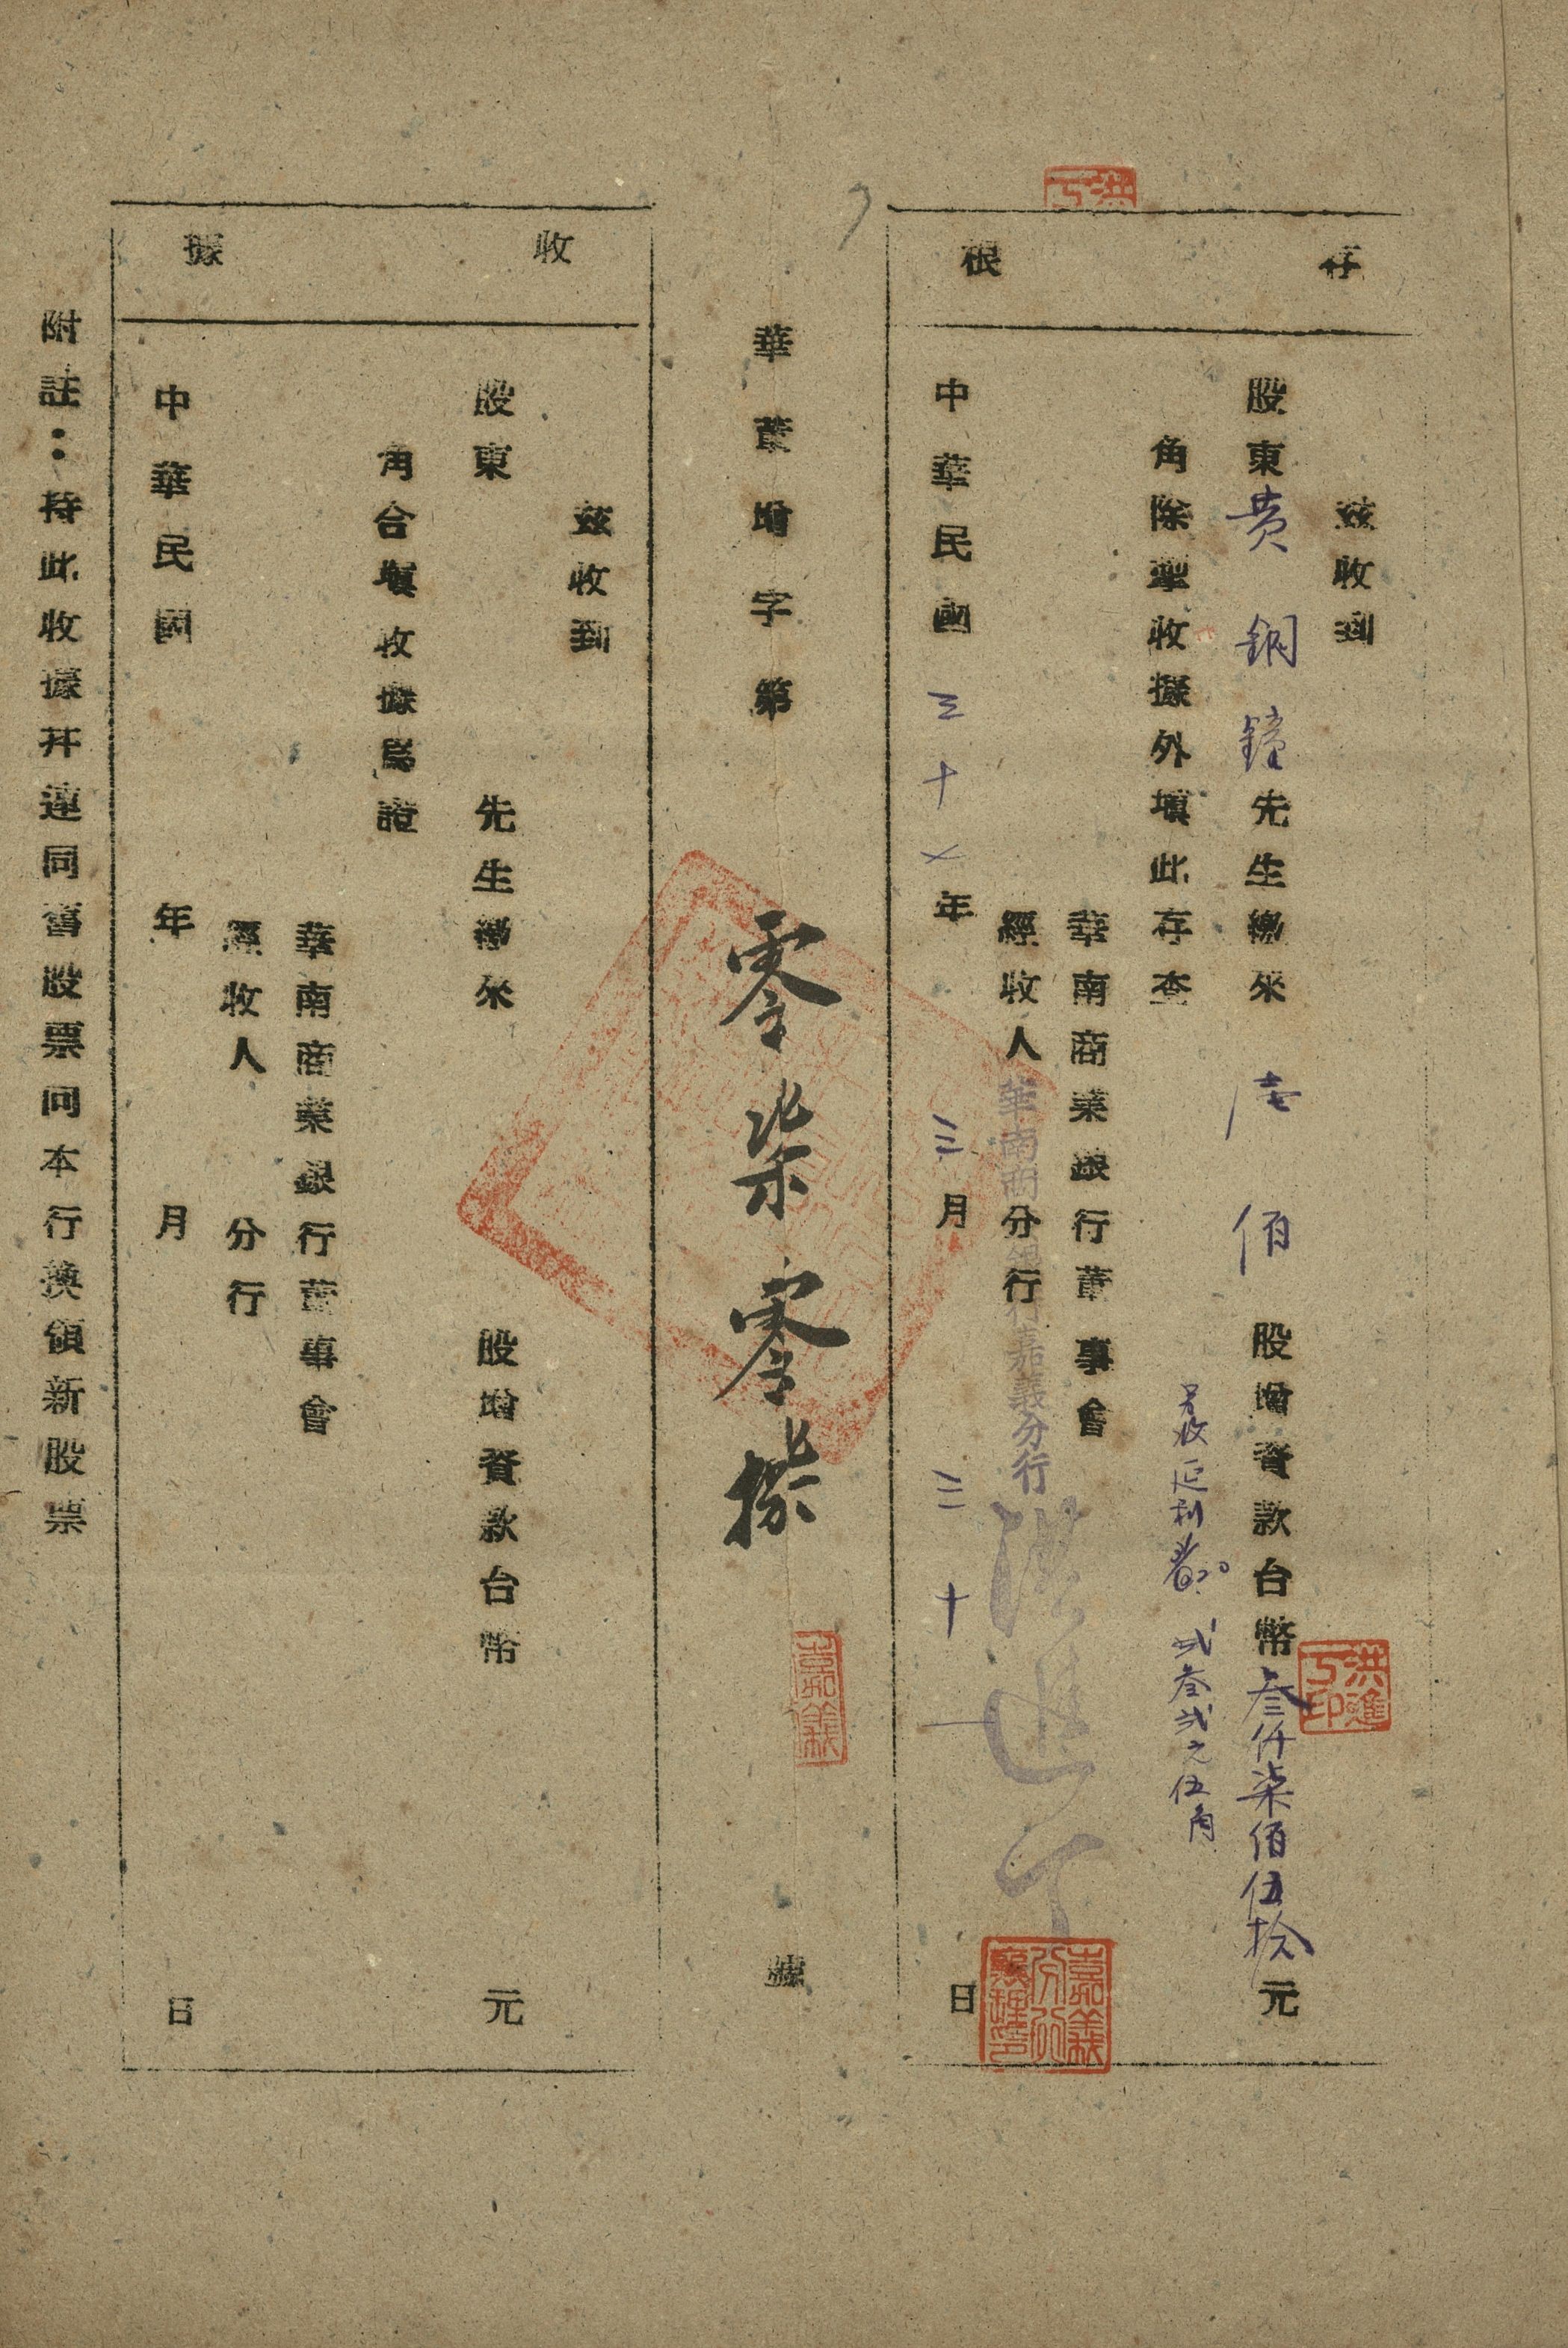 存根
茲收到
股東黄銅鐘先生繳來陆佰股增資款台幣叁仟柒佰伍拾元
角除掣收據外填此存查
另收延利 弍叁弍元伍角
華南商業銀行董事會
經收人 分行
華南商業銀行嘉義分行
洪進丁
中華民國三十七年三月三十一日
洪進丁印
嘉義分行
華董增字第零柒零捌號
嘉義
收據
茲收到
股東 先生繳來 股增資款台幣 元
角合填收據為證
華南商業銀行董事會
經收人 分行
中華民國 年 月 日
附註：持此收據幷連同舊股票向本行換領新股票